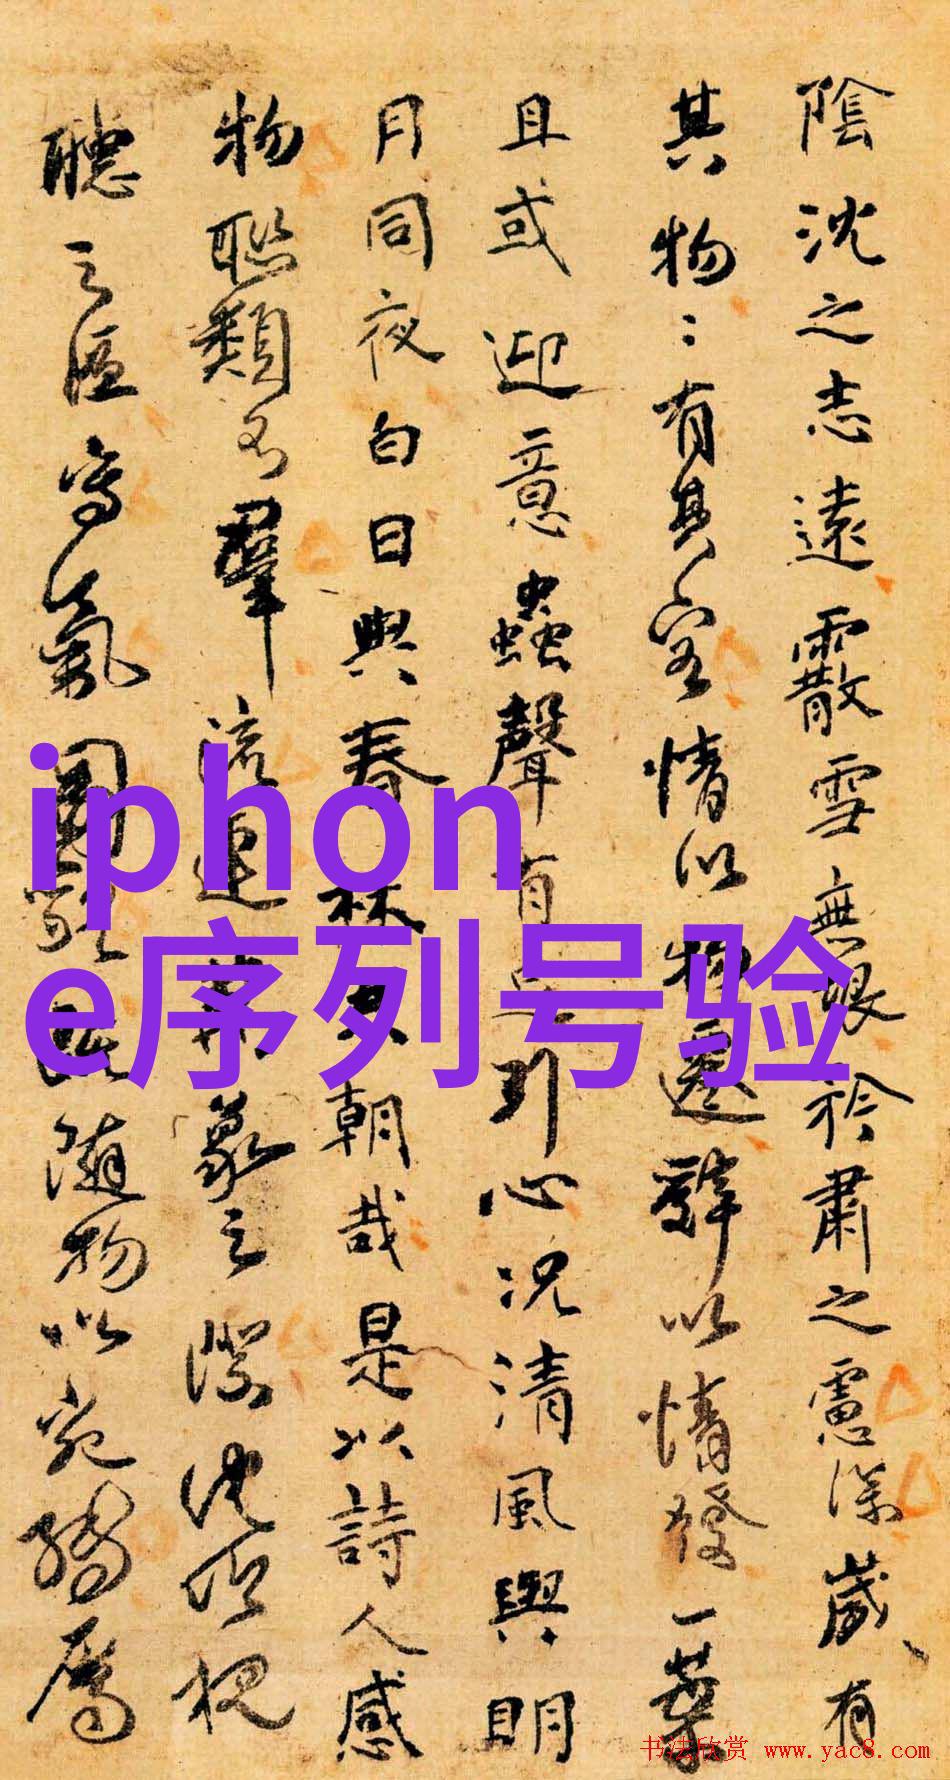 陰沈之志遠霰雪無垠矜肅之慮深歲有
其物〻有其容情以物遷辭以情發一葉
且或迎意蟲聲有足引心況清風與明
月同夜白日與春林共朝哉是以詩人感
物聯類不窮流連萬象之際沈吟視
聽之區寫氣圖貌既隨物以宛轉屬
iphon
e序列号验
书法欣赏 www.yac8.com